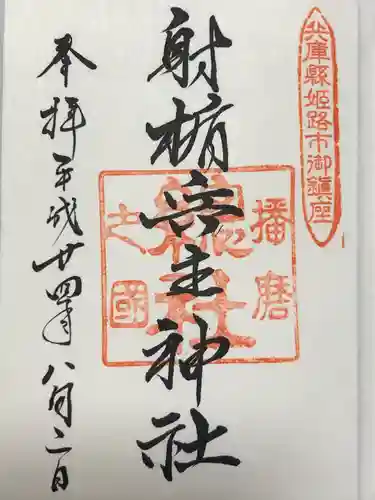 兵庫縣姫路市御鎮座
射楯兵主神社
播磨
総社
之國
奉拝平成廿四年八月二日